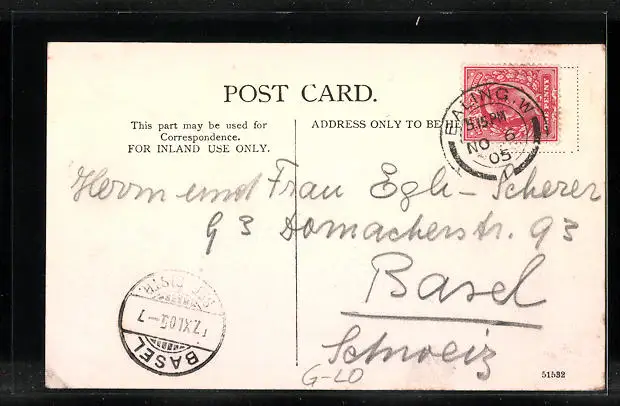 POST CARD.
This part may be used for
Correspondence.
FOR INLAND USE ONLY.
ADDRESS ONLY TO BE HE
EALING. W
5.15 PM
NO 6
05
Herrn und Frau Egli-Scherer
93 Dornacherstr. 93
Basel
Schweiz
BASEL
7.XI.05-7
G-LO
51532